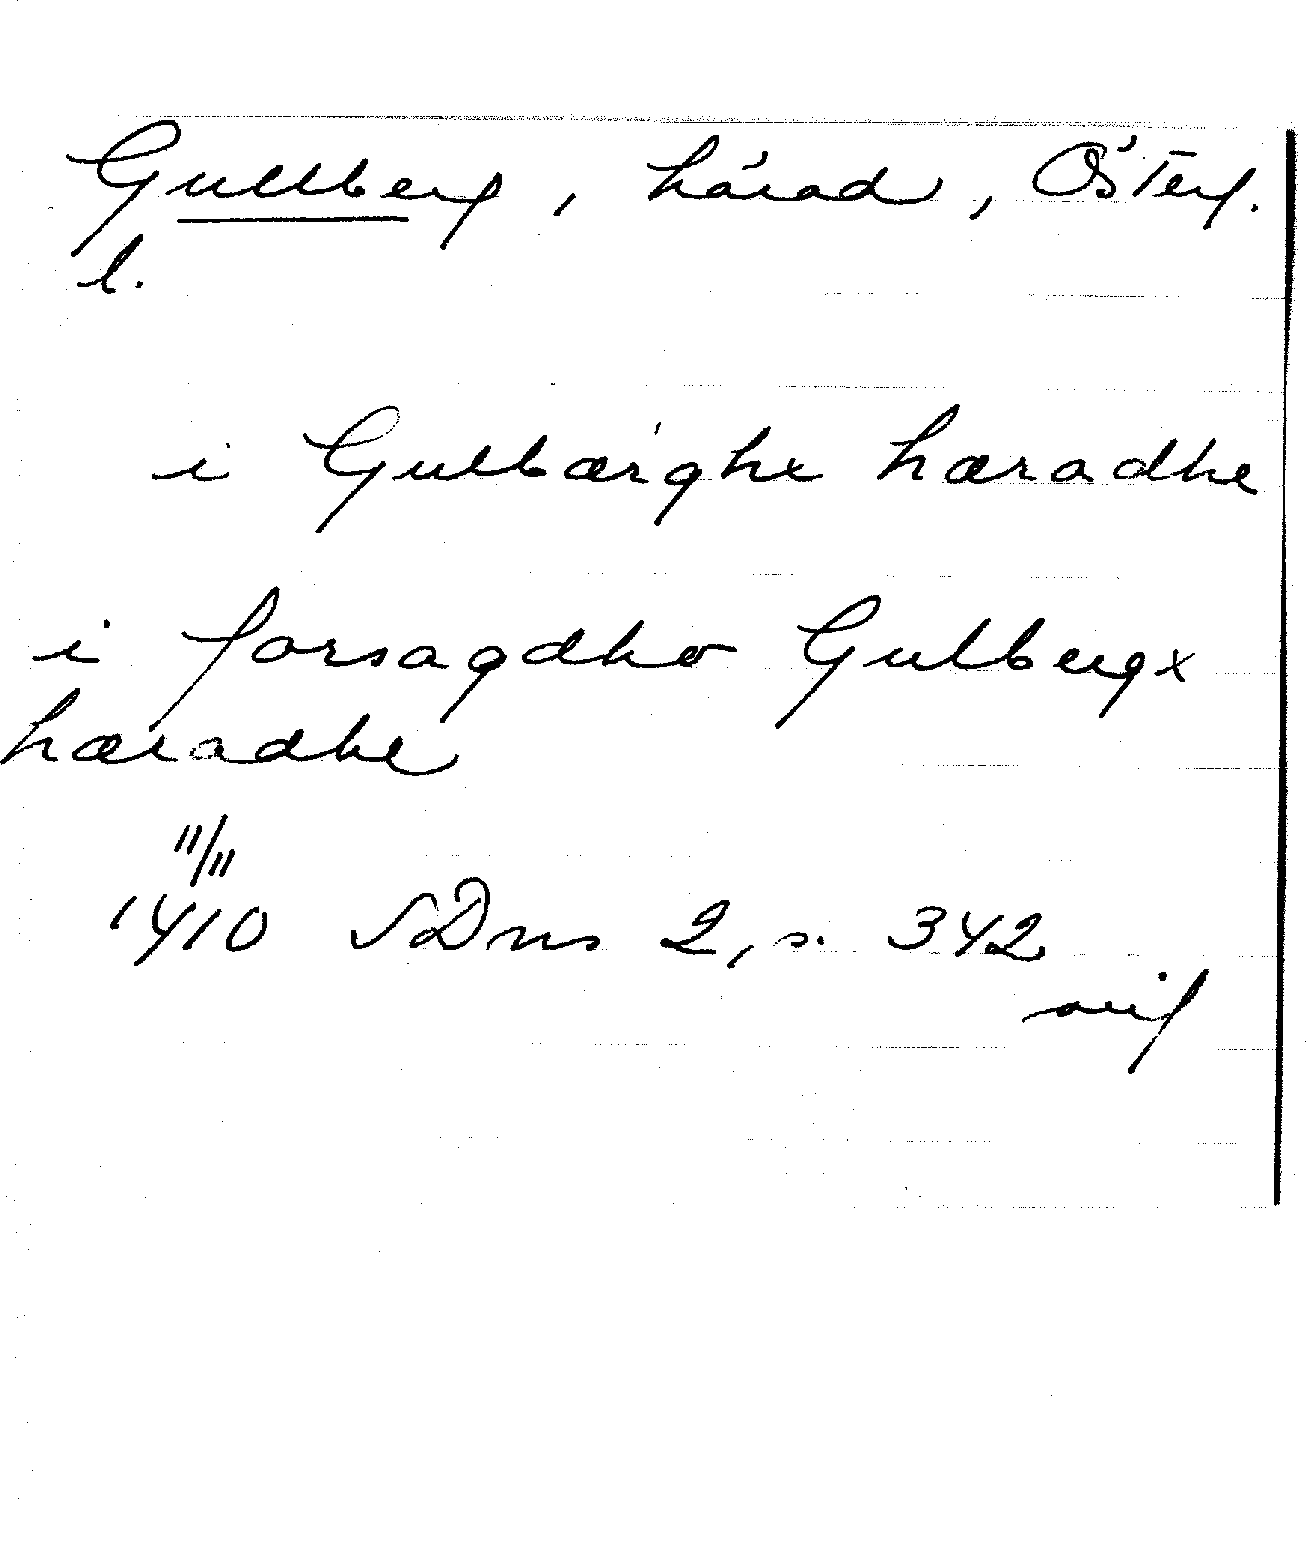 Gullberg, härad, Österg.
l.
i Gulbærghx hæradhe
i forsagdho Gulbergx
hæradhe
11/11
1410 SDns 2, s. 342
orig